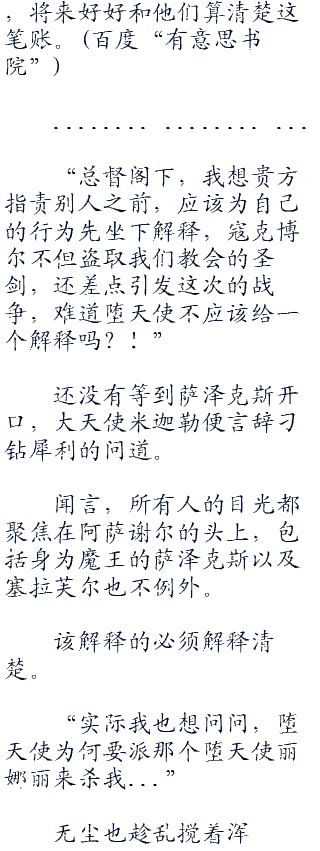 ，将来好好和他们算清楚这
笔账。(百度“有意思书
院”)
........ ........ ...
“总督阁下，我想贵方
指责别人之前，应该为自己
的行为先坐下解释，寇克博
尔不但盗取我们教会的圣
剑，还差点引发这次的战
争，难道堕天使不应该给一
个解释吗？！”
还没有等到萨泽克斯开
口，大天使米迦勒便言辞刁
钻犀利的问道。
闻言，所有人的目光都
聚焦在阿萨谢尔的头上，包
括身为魔王的萨泽克斯以及
塞拉芙尔也不例外。
该解释的必须解释清
楚。
“实际我也想问问，堕
天使为何要派那个堕天使丽
娜丽来杀我...”
无尘也趁乱搅着浑